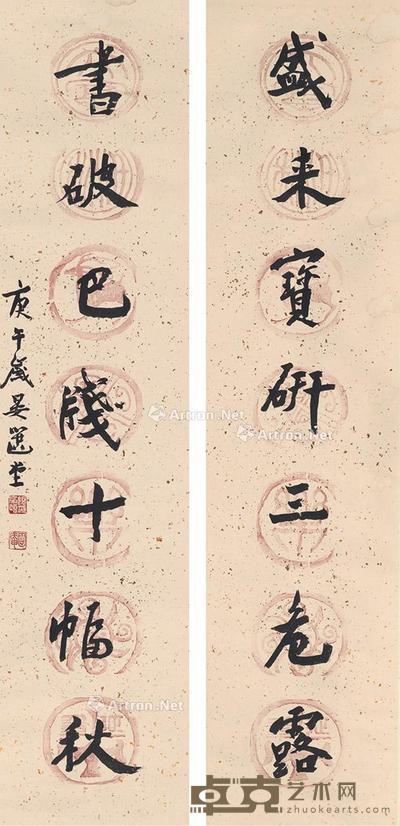 盛来寶研三危露
書破巴牋十幅秋
庚午歲晏選堂
Artron.Net
Artron.Net
Artron.Net
Artron.Net
卓克艺术网
zhuokearts.com